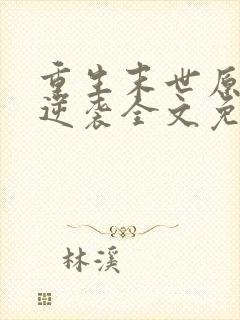 重生末世原
逆袭全文免
林溪